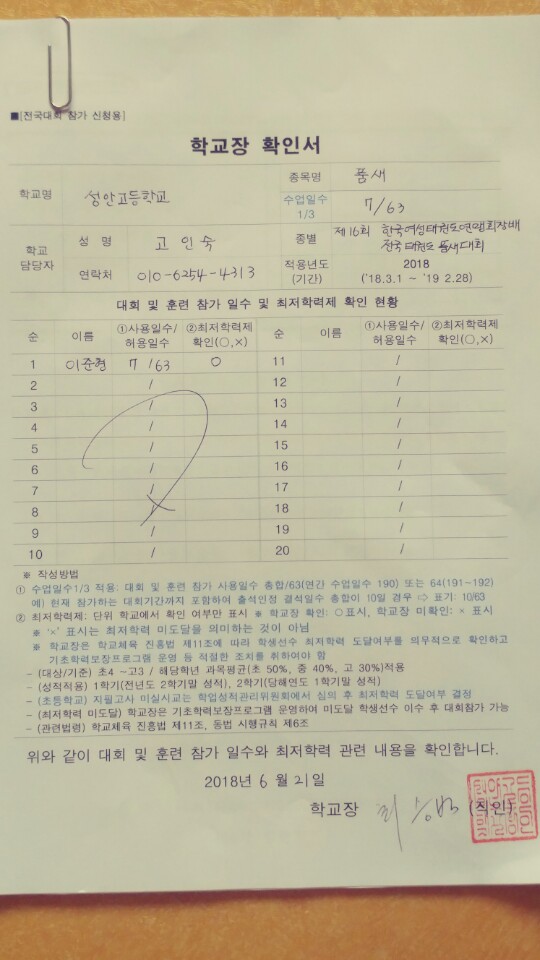 ■[전국대회 참가 신청용]
학교장 확인서
학교명 성안고등학교 종목명 품새
수업일수 1/3 7/63
학교 담당자 성 명 고인숙 종별 제16회 한국여성태권도연맹회장배 전국태권도품새대회
연락처 010-6254-4313 적용년도 (기간) 2018 ('18.3.1 ~ '19 2.28)
대회 및 훈련 참가 일수 및 최저학력제 확인 현황
순 이름 ①사용일수/허용일수 ②최저학력제 확인(○,×) 순 이름 ①사용일수/허용일수 ②최저학력제 확인(○,×)
1 이준형 7/63 ○ 11 /
2 / 12 /
3 / 13 /
4 / 14 /
5 / 15 /
6 / 16 /
7 / 17 /
8 / 18 /
9 / 19 /
10 / 20 /
※ 작성방법
① 수업일수1/3 적용: 대회 및 훈련 참가 사용일수 총합/63(연간 수업일수 190) 또는 64(191~192)
예) 현재 참가하는 대회기간까지 포함하여 출석인정 결석일수 총합이 10일 경우 ⇨ 표기: 10/63
② 최저학력제: 단위 학교에서 확인 여부만 표시 ※ 학교장 확인: ○표시, 학교장 미확인: × 표시
※ '×' 표시는 최저학력 미도달을 의미하는 것이 아님
※ 학교장은 학교체육 진흥법 제11조에 따라 학생선수 최저학력 도달여부를 의무적으로 확인하고
기초학력보장프로그램 운영 등 적절한 조치를 취하여야 함
- (대상/기준) 초4 ~고3 / 해당학년 과목평균(초 50%, 중 40%, 고 30%)적용
- (성적적용) 1학기(전년도 2학기말 성적), 2학기(당해연도 1학기말 성적)
- (초등학교) 지필고사 미실시교는 학업성적관리위원회에서 심의 후 최저학력 도달여부 결정
- (최저학력 미도달) 학교장은 기초학력보장프로그램 운영하여 미도달 학생선수 이수 후 대회참가 가능
- (관련법령) 학교체육 진흥법 제11조, 동법 시행규칙 제6조
위와 같이 대회 및 훈련 참가 일수와 최저학력 관련 내용을 확인합니다.
2018년 6 월 21일
학교장 (직인)